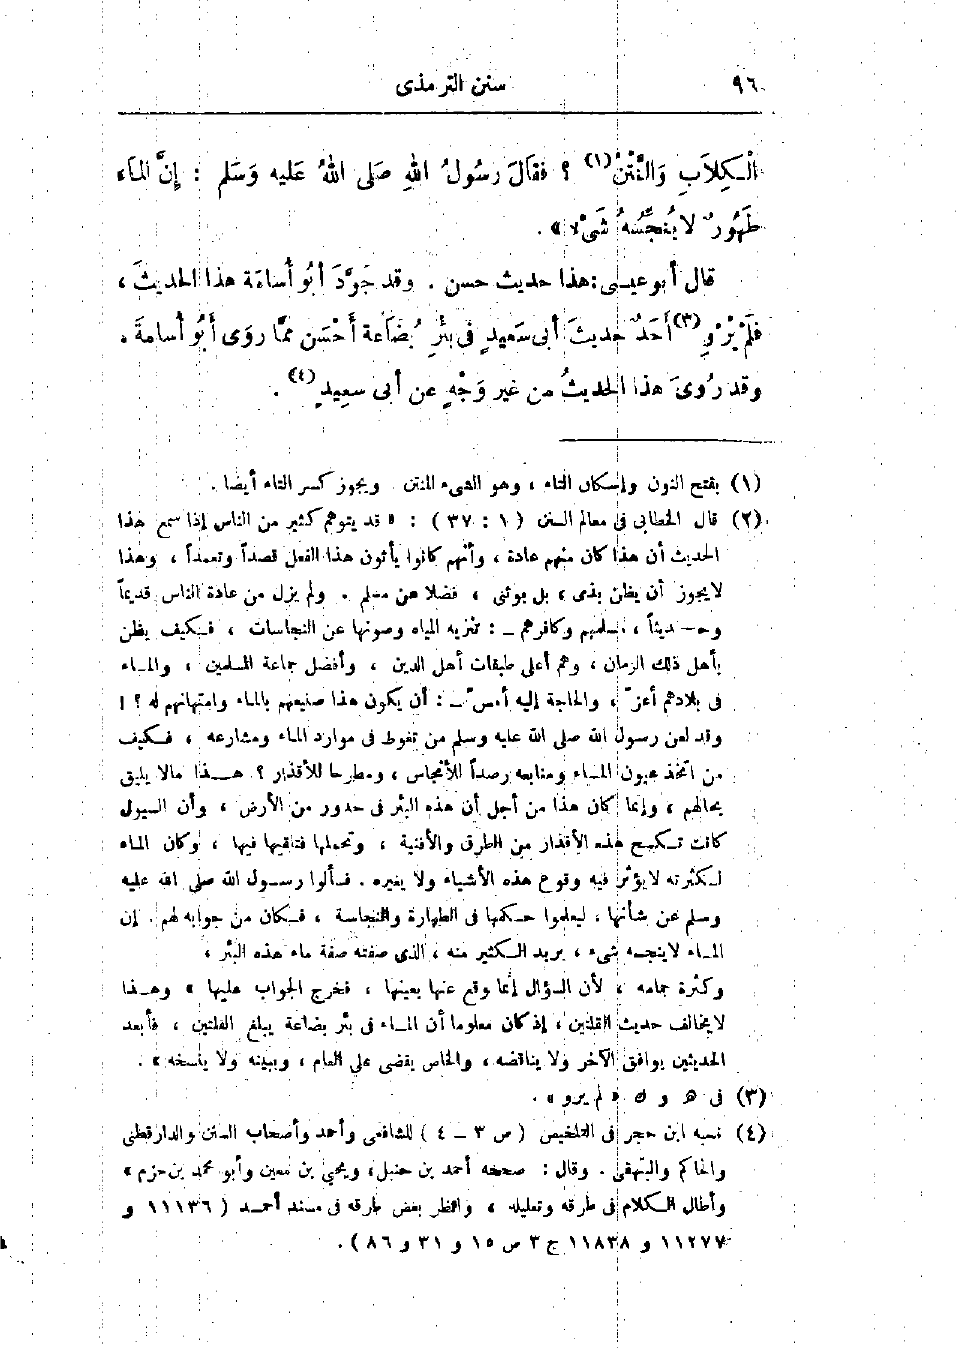 ٩٦
سنن الترمذى
الْـكِلاَبِ وَالنَّتْنُ(١) ؟ فقالَ رسُولُ اللهِ صَلى اللهُ عَليه وَسَلم : إنَّ المـاَء
طَهُورٌ لا يُنَجِّسُهُ شَىْءٌ » .
قال أبو عيسى : هذا حديث حسن . وقد جَوَّدَ أبُو أُسامَة هذا الحديثَ ،
فلَمْ يَرْوِ(٣) أحَدٌ حديثَ أبى سَعيدٍ فى بئْرِ بُضَاعة أحْسَن ممَّا روَى أَبُو أُسامةَ .
وقد رُوىَ هذا الحديثُ من غير وَجْهٍ عن أبى سعِيدٍ(٤) .
(١) بفتح النون وإسكان التاء ، وهو الشىء المنتن . ويجوز كسر التاء أيضا .
(٢) قال الخطابى فى معالم السنن ( ١ : ٣٧ ) : « قد يتوهم كثير من الناس إذا سمع هذا
الحديث أن هذا كان منهم عادة ، وأنهم كانوا يأتون هذا الفعل قصداً وتعمداً ، وهذا
لا يجوز أن يظن بذى ، بل بوثنى ، فضلا عن مسلم . ولم يزل من عادة الناس قديماً
وحـديثاً ، مسلمهم وكافرهم ـ : تنزيه المياه وصونها عن النجاسات ، فـكيف يظن
بأهل ذلك الزمان ، وهم أعلى طبقات أهل الدين ، وأفضل جماعة المسلمين ، والمـاء
فى بلادهم أعزّ ، والحاجة إليه أمسّ ـ : أن يكون هذا صنيعهم بالمـاء وامتهانهم له ؟ !
وقد لعن رسول الله صلى الله عليه وسلم من تغوط فى موارد المـاء ومشارعه ، فـكيف
من اتخذ عيون المـاء ومنابعه رصداً للأنجاس ، ومطرحا للأقذار ؟ هـذا مالا يليق
بحالهم ، وإنما كان هذا من أجل أن هذه البئر فى حدور من الأرض ، وأن السيول
كانت تـكسح هذه الأقذار من الطرق والأفنية ، وتحملها فتلقيها فيها ، وكان المـاء
لـكثرته لا يؤثر فيه وقوع هذه الأشياء ولا يغيره . فسألوا رسـول الله صلى الله عليه
وسلم عن شأنها ، ليعلموا حـكمها فى الطهارة والنجاسة ، فـكان من جوابه لهم . إن
المـاء لا ينجسه شىء ، يريد الـكثير منه ، الذى صفته صفة ماء هذه البئر ،
وكثرة جمامه ، لأن السؤال إنما وقع عنها بعينها ، فخرج الجواب عليها » وهـذا
لا يخالف حديث القلتين ، إذ كان معلوما أن المـاء فى بئر بضاعة يبلغ القلتين ، فأبعد
الحديثين يوافق الآخر ولا يناقضه ، والخاص يقضى على العام ، ويبينه ولا ينسخه » .
(٣) فى هـ و ك « لم يرو » .
(٤) نسبه ابن حجر فى التلخيص ( ص ٣ ـ ٤ ) للشافعى وأحمد وأصحاب السنن والدارقطنى
والحاكم والبيهقى . وقال : صححه أحمد بن حنبل ، ويحيى بن معين وأبو محمد بن حزم »
وأطال الـكلام فى طرقه وتعليله ، وانظر بعض طرقه فى مسند أحمـد ( ١١١٣٦ و
١١٢٧٧ و ١١٨٣٨ ج ٣ ص ١٥ و ٣١ و ٨٦ ) .